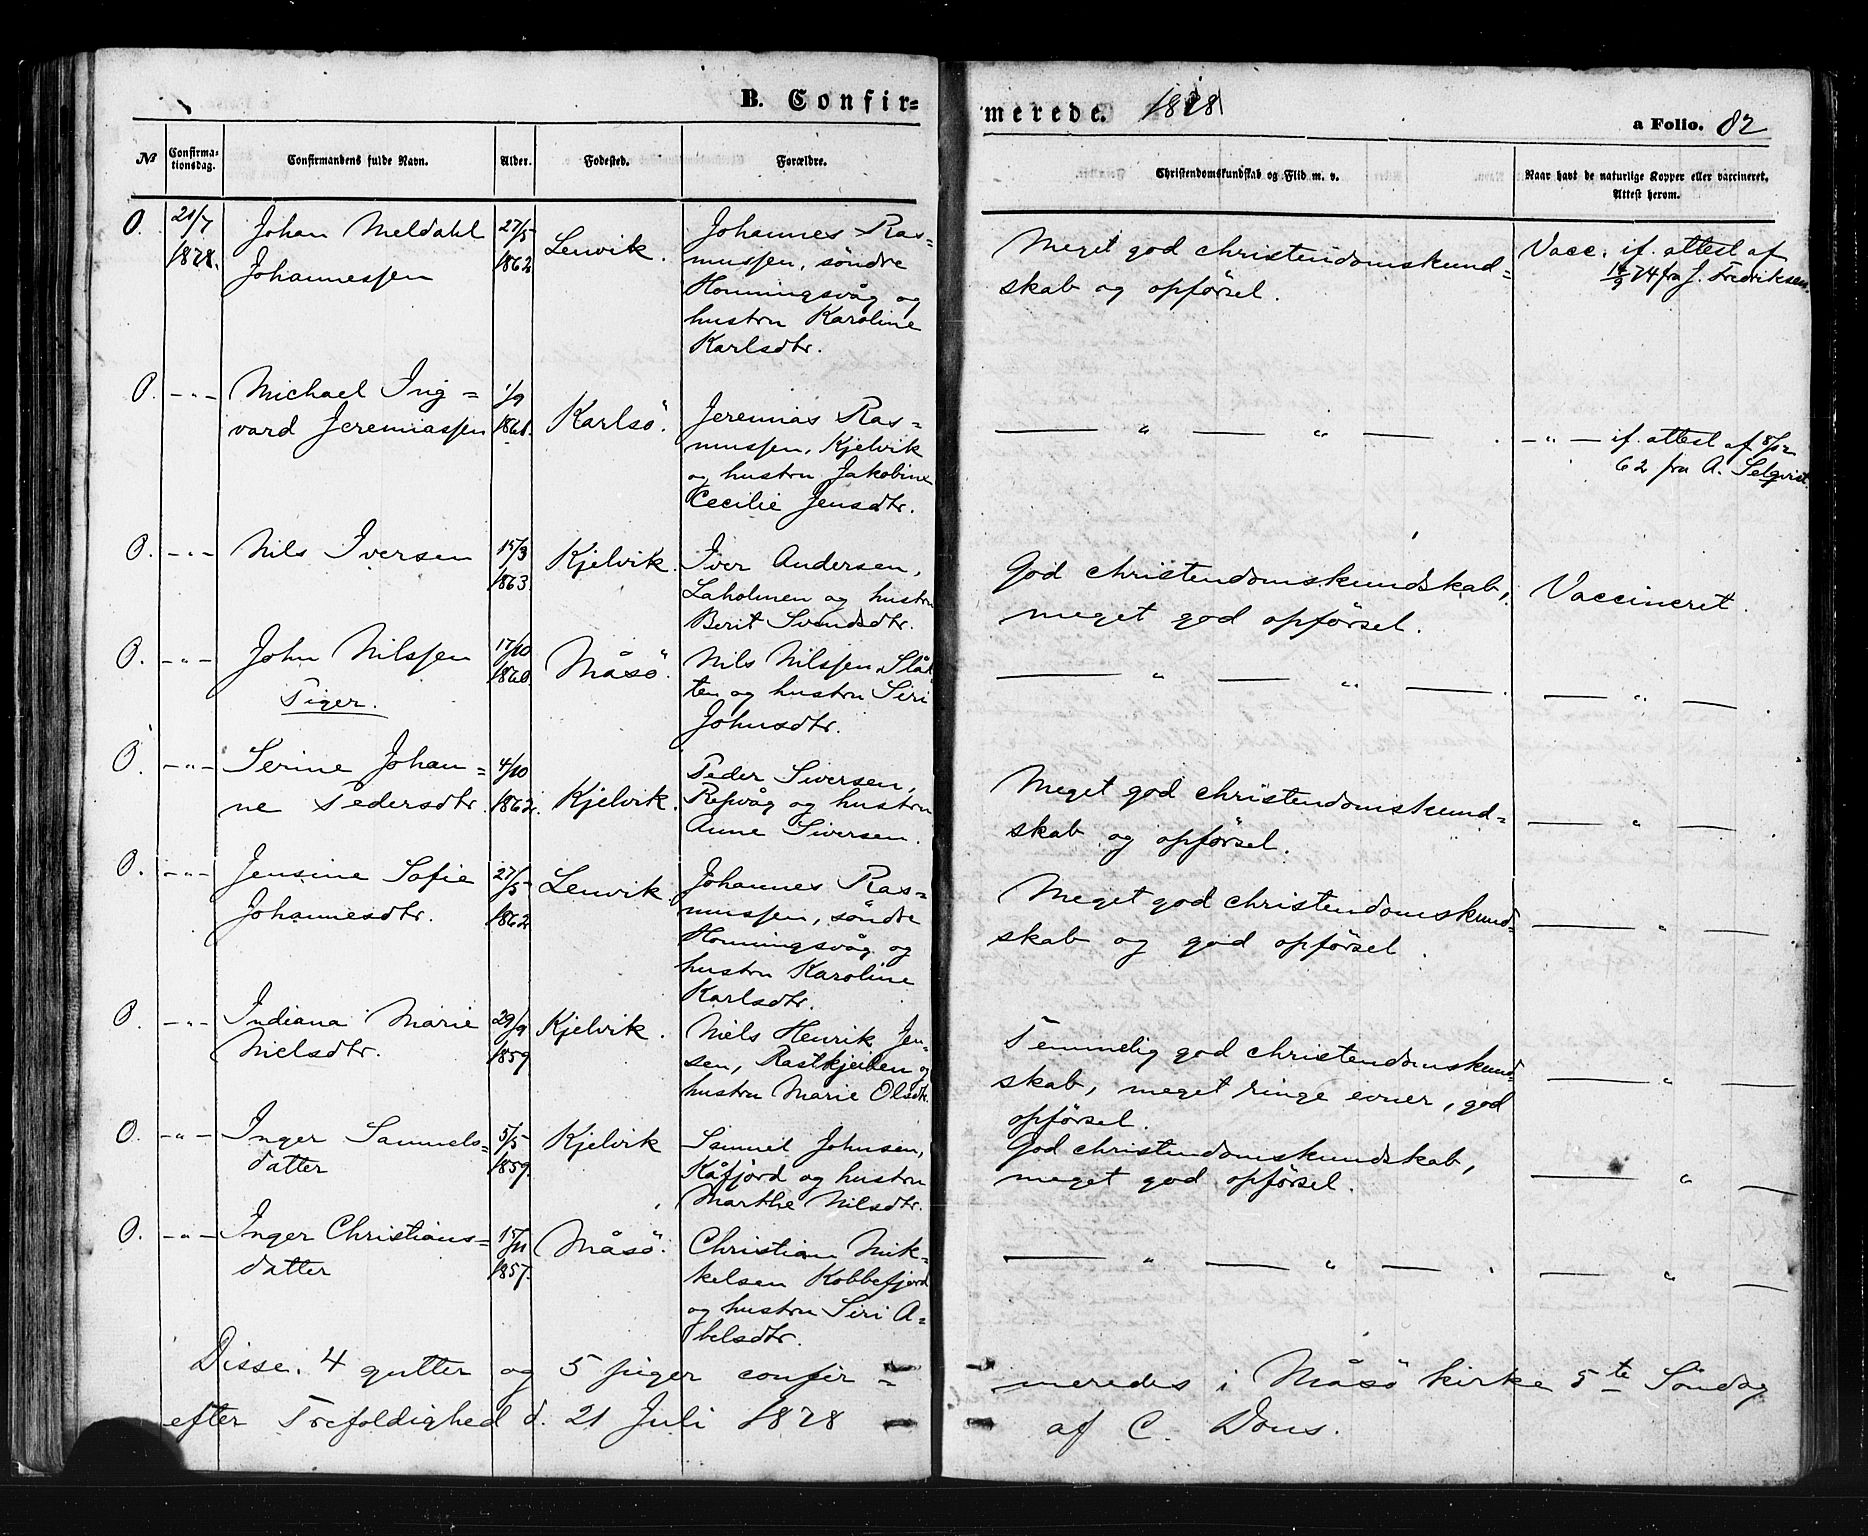 B. Confir=
merede. 1878
a Folio. 82
№
Confirma-
tionsdag.
Confirmandens fulde Navn.
Alder.
Fødested.
Forældre.
Christendomskundskab og Flid m. v.
Naar havt de naturlige Kopper eller vaccineret.
Attest herom.
O. 21/7 1878.
Johan Meldahl
Johannessen
27/5 1862
Lenvik.
Johannes Ras=
mussen, söndre
Honningsvåg og
hustru Karoline
Karlsdtr.
Meget god christendomskund=
skab og opførsel.
Vacc. if. attest af
74 fra J. Fredriksen.
O. -"-
Michael Ing=
vard Jeremiassen
1/9 1861.
Karlsö.
Jeremias Ras=
mussen, Kjelvik
og hustru Jakobine
Cecilie Jensdtr.
— " — " — .
—"— if. attest af 8/12
62 fra A. Selqvist.
O. -"-
Nils Iversen
15/3 1863.
Kjelvik.
Iver Andersen,
Laholmen og hustru
Berit Svendsdtr.
God christendomskundskab,
meget god opførsel.
Vaccineret.
O. -"-
John Nilssen
17/10 1860.
Måsö.
Nils Nilssen, Slåt
ten og hustru Siri
Johnsdtr.
— " — " — .
— " — .
Piger.
O. -"-
Serine Johan=
ne Pedersdtr.
4/10 1862.
Kjelvik.
Peder Siversen,
Repvåg og hustru
Anne Siversen.
Meget god christendomskund=
skab og opførsel.
— " — .
O. -"-
Jensine Sofie
Johannesdtr.
27/5 1862
Lenvik.
Johannes Ras=
mussen, söndre
Honningsvåg og
hustru Karoline
Karlsdtr.
Meget god christendomskund=
skab og god opførsel.
— " —
O. -"-
Indiana Marie
Nielsdtr.
29/9 1859
Kjelvik.
Niels Henrik Jen-
sen, og
hustru Marie Olsdtr.
Temmelig god christendomskund=
skab, meget ringe evner, god
opførsel.
— " —
O. -"-
Inger Samuels=
datter
5/5 1859.
Kjelvik
Samuel Johnsen,
Kåfjord og hustru
Marthe Nilsdtr.
God christendomskundskab,
meget god opførsel.
— " —
O. -"-
Inger Christians=
datter
15/11 1857.
Måsö.
Christian Mik=
kelsen Kobbefjord
og hustru Siri A=
belsdtr.
— " — " — .
— " —
Disse 4 gutter og 5 piger confir=
meredes i Måsö kirke 5te Söndag
efter Trefoldighed d. 21 Juli 1878
af C. Dons.